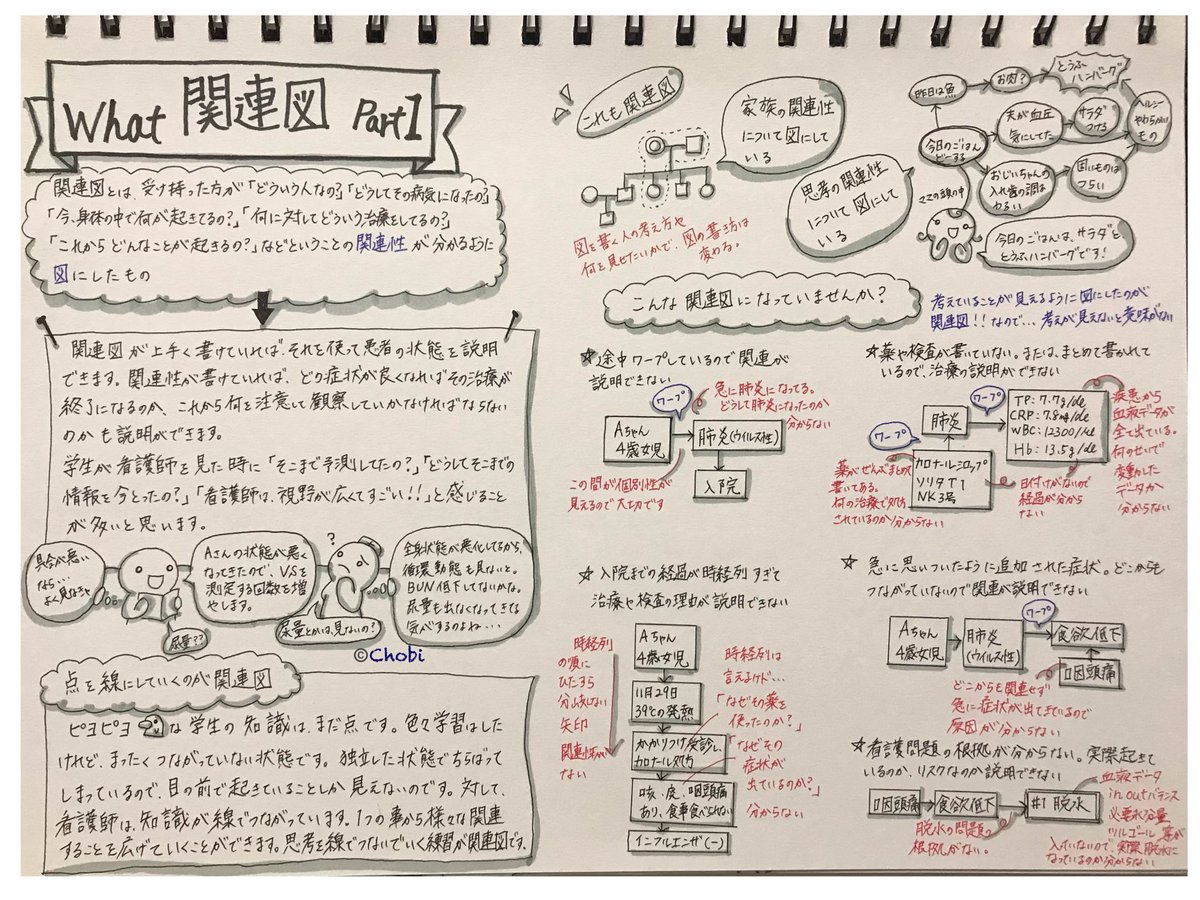 What 関連図 Part1
関連図とは、受け持った方が「どういう人なの?」「どうしてその病気になったの?」
「今、身体の中で何が起きてるの?」「何に対してどういう治療をしてるの?」
「これから どんなことが起きるの?」などということの関連性が分かるように
図にしたもの
関連図が上手く書けていれば、それを使って患者の状態を説明
できます。関連性が書けていれば、どの症状が良くなればその治療が
終了になるのか、これから何を注意して観察していかなければならない
のかも説明ができます。
学生が看護師を見た時に「そこまで予測してたの?」「どうしてそこまでの
情報を今とったの?」「看護師は、視野が広くてすごい!!」と感じること
が多いと思います。
具合が悪い
なら…
よく見なきゃ
尿量??
Aさんの状態が悪く
なってきたので、V.Sを
測定する回数を増
やします。
?
尿量とかは、見ないの?
全身状態が悪化してるから、
循環動態も見ないと。
BUN低下してないかな。
尿量も出なくなってきてる
気がするのよね…
©Chobi
点を線にしていくのが関連図
ピヨピヨ な学生の知識は、まだ点です。色々学習はした
けれど、まったくつながっていない状態です。独立した状態でちらばって
しまっているので、目の前で起きていることしか見えないのです。対して、
看護師は、知識が線でつながっています。1つの事から様々な関連
することを広げていくことができます。思考を線でつないでいく練習が関連図です。
これも関連図
家族の関連性
について図にして
いる
図を書く人の考え方や
何を見せたいかで、図の書き方は
変わる。
思考の関連性
について図にして
いる
昨日は魚
お肉?
とうふ
ハンバーグ
今日のごはん
どーする
夫が血圧
気にしてた
サラダ
つける
ヘルシー
やわらかい
もの
おじいちゃんの
入れ歯の調子
わるい
固いものは
つらい
ママの頭の中
今日のごはんは、サラダと
とうふハンバーグです!
こんな関連図になっていませんか?
考えていることが見えるように図にしたのが
関連図!!なので… 考えが見えないと意味がない
☆途中ワープしているので関連が
説明できない
ワープ
急に肺炎になってる。
どうして肺炎になったのか
分からない
Aちゃん
4歳女児
肺炎(ウイルス性)
入院
この間が個別性が
見えるので大切です
☆薬や検査が書いていない。または、まとめて書かれて
いるので、治療の説明ができない
ワープ
肺炎
TP:7.7g/dl
CRP:7.8mg/dl
WBC:12300/μl
Hb:13.5g/dl
疾患から
血液データが
全て出ている。
何のせいで
変動した
データか
分からない
ワープ
カロナールシロップ
ソリタT1
NK3号
薬がぜんぶまとめて
書いてある。
何の治療で処方
されているのか分からない
日付けがないので
経過が分から
ない
☆入院までの経過が時経列すぎて
治療や検査の理由が説明できない
時経列
の順に
ひたすら
分岐しない
矢印
関連性がない
Aちゃん
4歳女児
11月29日
39℃の発熱
かかりつけ受診し、
カロナール処方
咳・痰・咽頭痛
あり、食事食べられない
インフルエンザ(-)
時経列は
言えるけど…
「なぜその薬を
使ったのか?」
「なぜその
症状が
出ているのか?」
分からない
☆急に思いついたように追加された症状。どこからも
つながっていないので関連が説明できない
ワープ
Aちゃん
4歳女児
肺炎
(ウイルス性)
食欲低下
咽頭痛
どこからも関連せず
急に症状が出てきているので
原因が分からない
☆看護問題の根拠が分からない。実際起きて
いるのか、リスクなのか説明できない
咽頭痛
食欲低下
#1 脱水
脱水の問題の
根拠がない。
血液データ
in outバランス
必要水分量
ツルゴール 等が
入っていないので、実際脱水に
なっているのか分からない